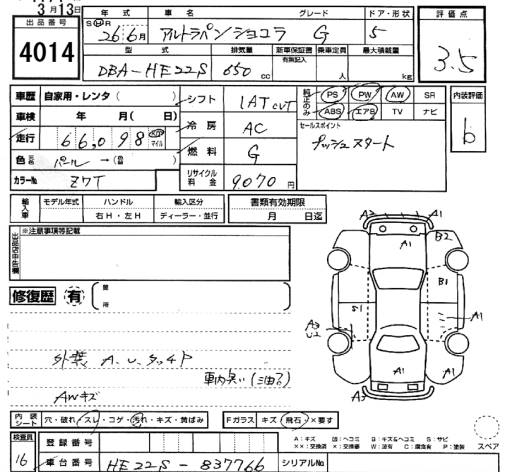 3月13日
出品番号
4014
年式 車名 グレード ドア・形状
S H R
26年6月 アルトラパンショコラ G 5
型式 排気量 新車保証書 乗車定員 最大積載量
有無記入
DBA-HE22S 650 cc 人 kg
評価点
3.5
車歴 自家用・レンタ( )
車検 年 月( 日)
走行 66,098 km マイル
色 元色 パール → (替 )
カラーNo ZVT
シフト IAT CVT
冷房 AC
燃料 G
リサイクル料金 9070 円
純正のみ PS PW AW SR
ABS エアB TV ナビ
セールスポイント
プッシュスタート
内装評価
b
輸入車 モデル年式 ハンドル 輸入区分
右H・左H ディーラー・並行
書類有効期限
月 日迄
※注意事項等記載
修復歴 有
箇所
外装 A.U.サッチP
車内臭い
AWキズ
A2 A1 B2
B1
S1 A1
A3
U2
A1 A1
A3
内装シート 穴・破れ・スレ・コゲ・汚れ・キズ・黄ばみ
Fガラス キズ・飛石・×要す
検査員
16
登録番号
車台番号 HE22S-837766 シリアルNo
A:キズ
スペア